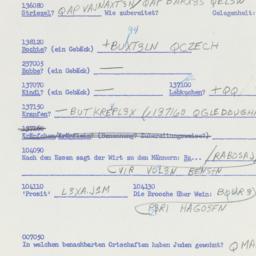 136080
Striezel? QAP VAJNAXT3N/ QAP BARX3S QEL3N
Wie zubereitet? Gelegenheit:
138120
Bochte? (ein Gebäck) +BUXT3LN QCZECH
237005
Bobbe? (ein Gebäck) —
137070 137100
Kindl? (ein Gebäck) — Lebkuchen? +QQ
137150
Krapfen? — BUT KREPL3X (/137160 QGLEDDUGHN
137160
(Benennung? Zubereitungsweise?)
104090
Nach dem Essen sagt der Wirt zu den Männern: /RABOSAJ
VIR VOL3N BENSN
104110 104130
'Prosit' L3XAJ3M Die Broche über Wein: BOUR3
PRI HAGOSFN
007050
In welchen benachbarten Ortschaften haben Juden gewohnt? QMA